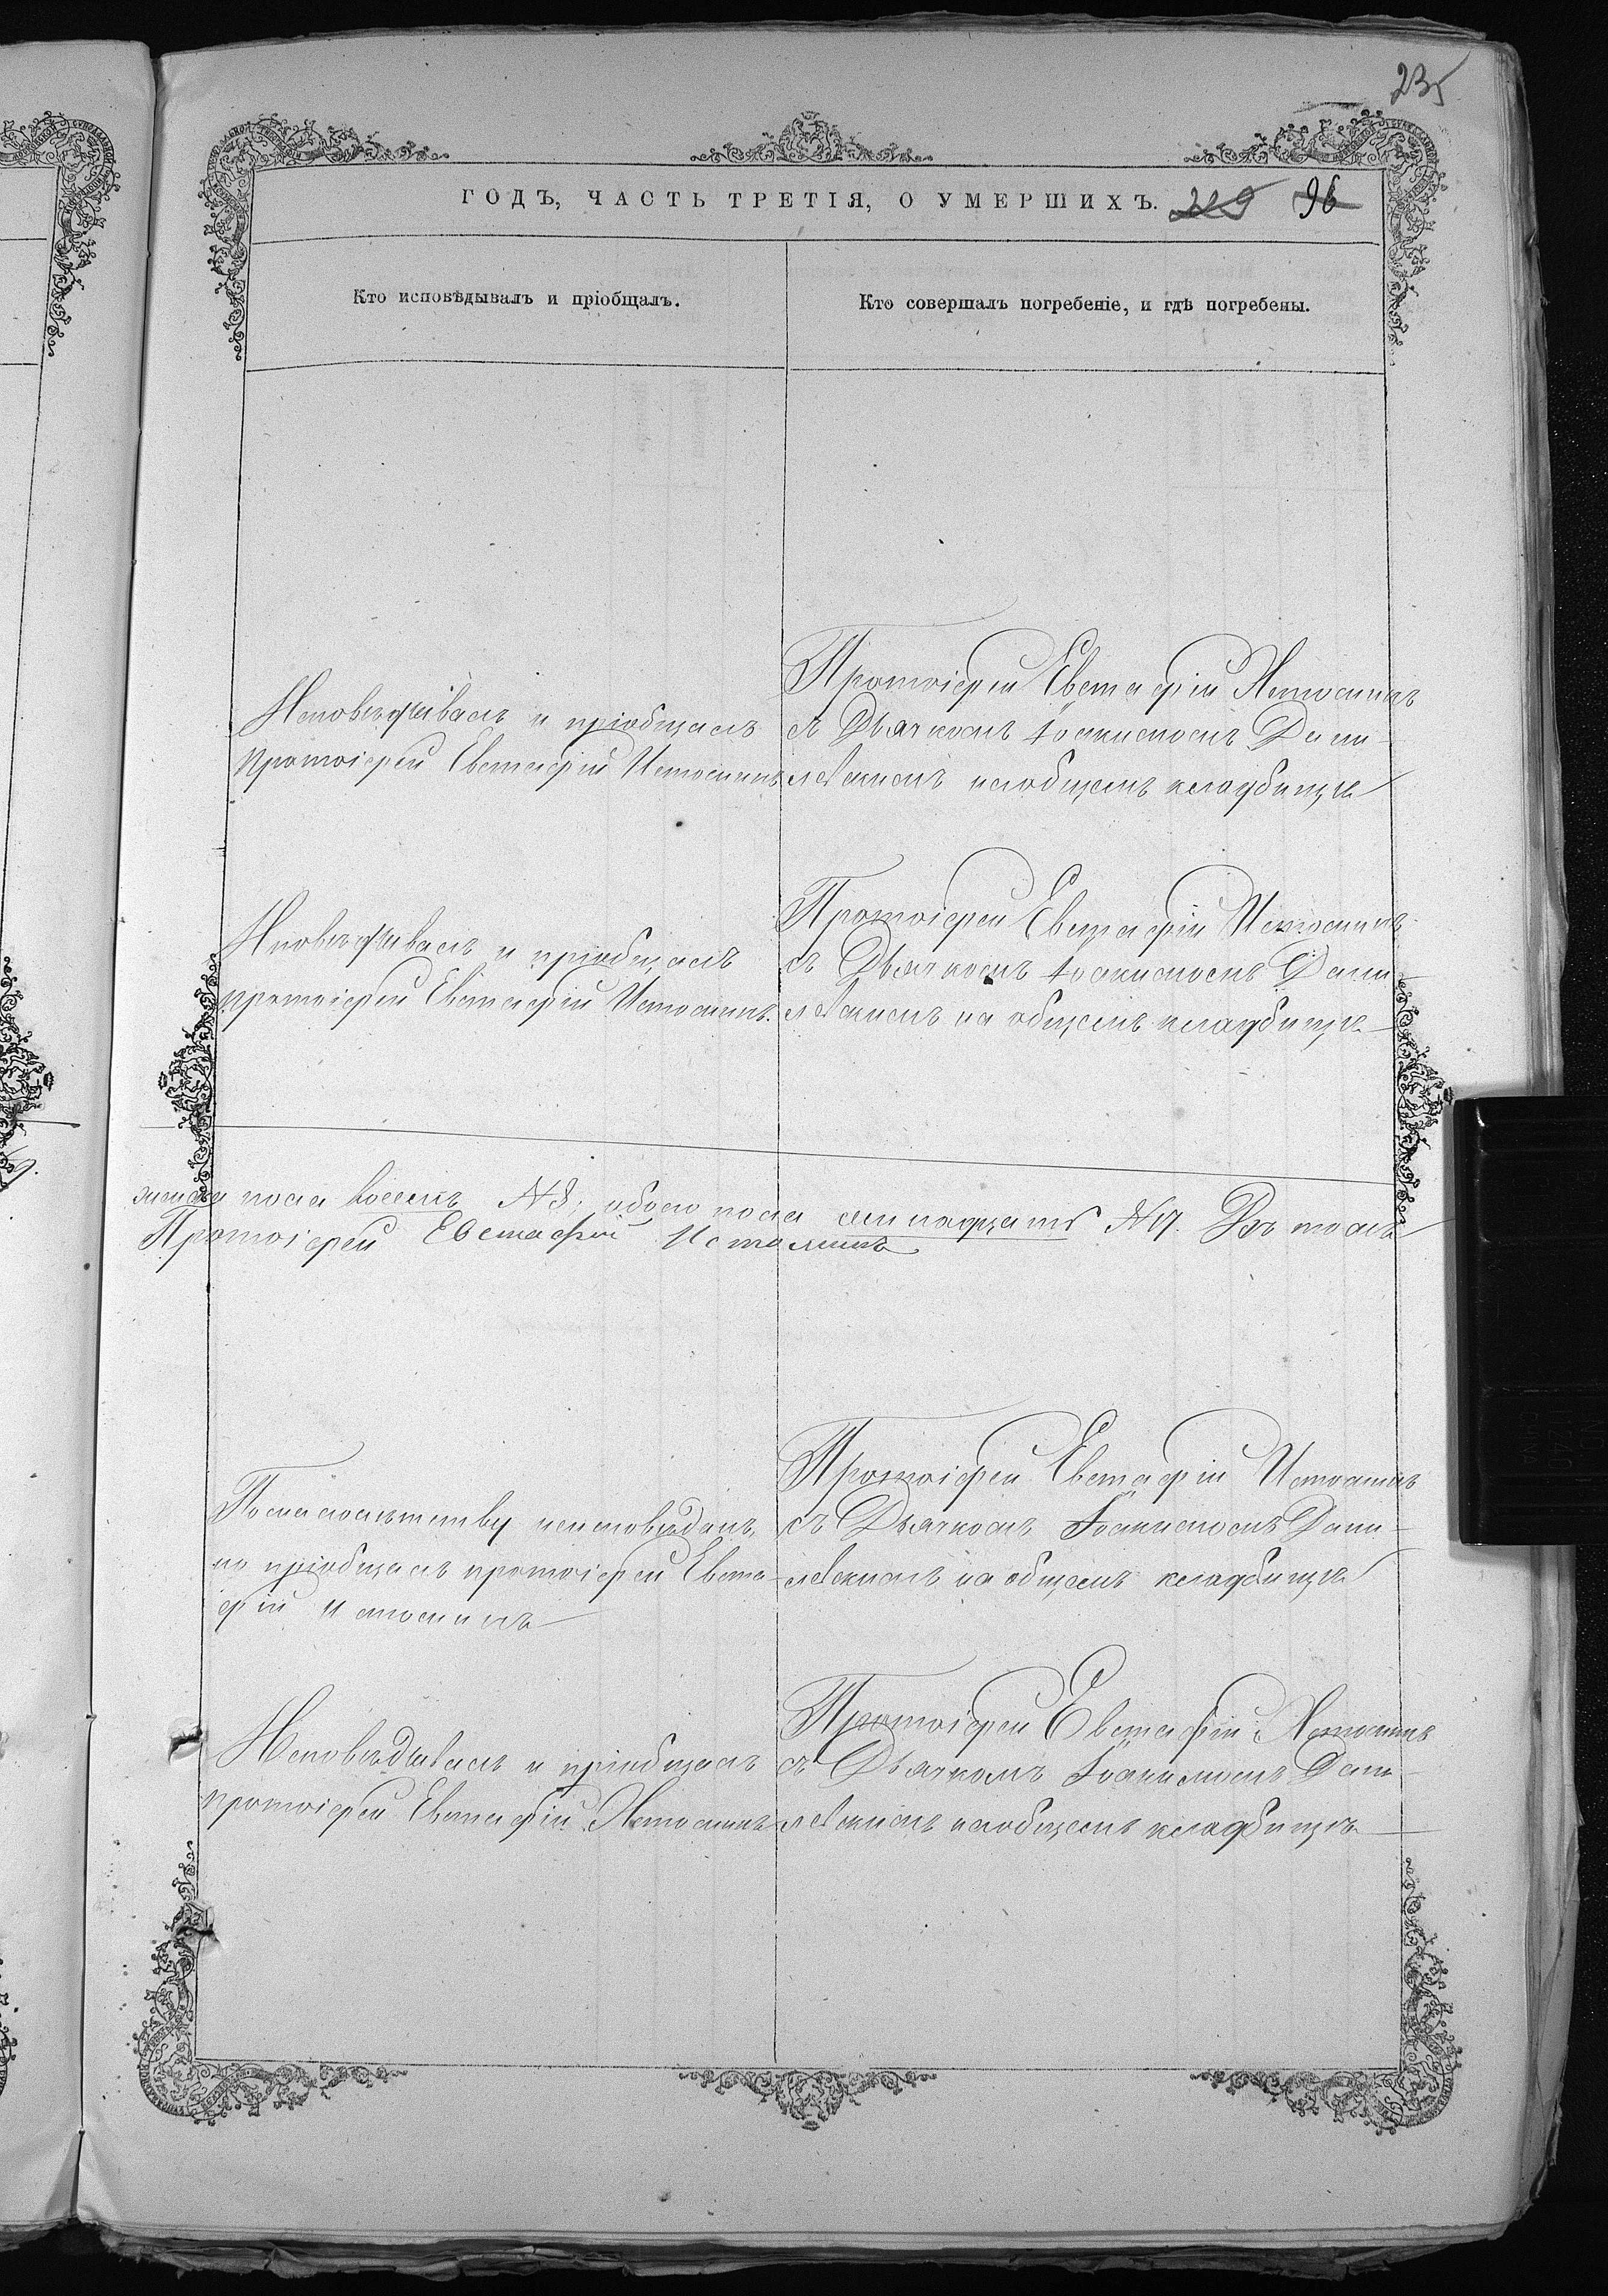 235
ГОДЪ, ЧАСТЬ ТРЕТІЯ, О УМЕРШИХЪ. 229 96
Кто исповѣдывалъ и пріобщалъ.
Кто совершалъ погребеніе, и гдѣ погребены.
Исповѣдывалъ и пріобщалъ
протоіерей Евстафій Истоминъ
Протоіерей Евстафій Истоминъ
съ Дьячкомъ Іоакимомъ Дани-
левскимъ на общемъ кладбищѣ
Исповѣдывалъ и пріобщалъ
протоіерей Евстафій Истоминъ.
Протоіерей Евстафій Истоминъ
съ Дьячкомъ Іоакимомъ Дани-
левскимъ на общемъ кладбищѣ
женска пола восемь №8, обоего пола семнадцать №17. Въ томъ
Протоіерей Евстафій Истоминъ
По малолѣтству неисповѣданъ,
но пріобщалъ протоіерей Евста-
фій Истоминъ
Протоіерей Евстафій Истоминъ
съ Дьячкомъ Іоакимомъ Дани-
левскимъ на общемъ кладбищѣ
Исповѣдывалъ и пріобщалъ
протоіерей Евстафій Истоминъ
Протоіерей Евстафій Истоминъ
съ Дьячкомъ Іоакимомъ Дани-
левскимъ на общемъ кладбищѣ